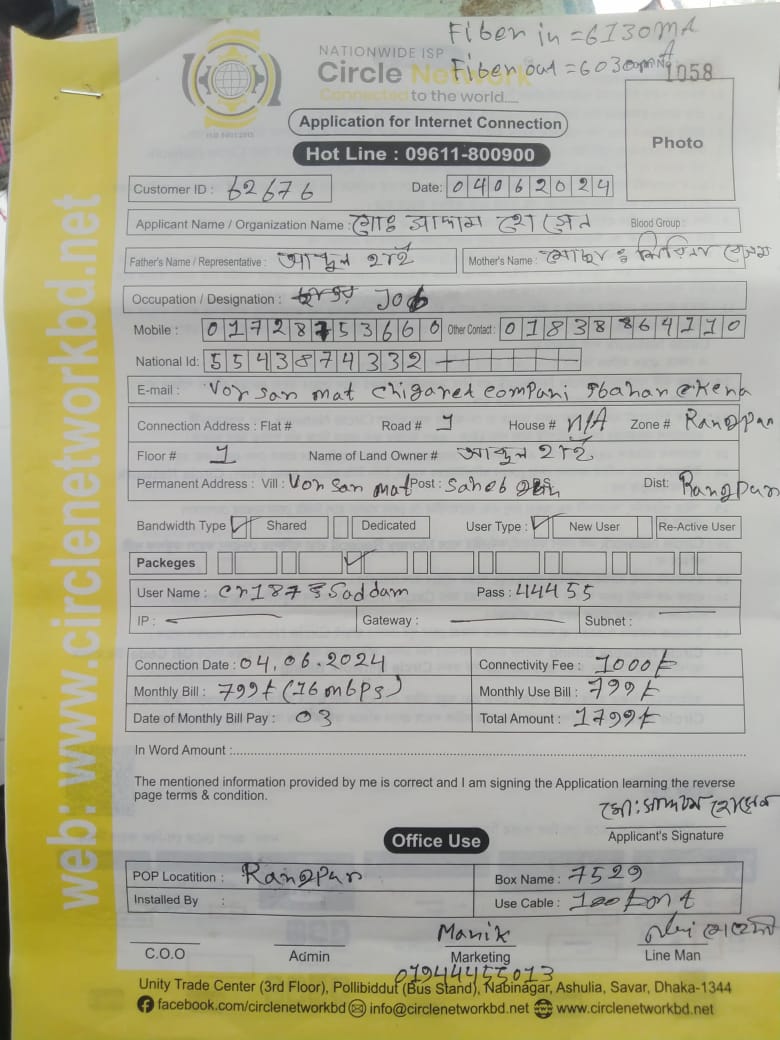 Fiber in = 6130mA
NATIONWIDE ISP
Circle Network Fiber out = 6030mA
1058
Connected to the world.....
ISO 9001:2015
Application for Internet Connection
Photo
Hot Line : 09611-800900
Customer ID : 62676 Date: 04062024
Applicant Name / Organization Name : মোঃ সাদ্দাম হোসেন Blood Group :
Father's Name / Representative : আব্দুল হাই Mother's Name : মোছাঃ শিরিনা বেগম
Occupation / Designation : Job
Mobile : 01728753660 Other Contact : 01838864110
National Id: 5543874332
E-mail : Vor san mat chigaret compani
Connection Address : Flat # Road # 1 House # N/A Zone # Rangpur
Floor # 1 Name of Land Owner # আব্দুল হাই
Permanent Address : Vill : Vor san mat Post : Saheb Dist: Rangpur
Bandwidth Type Shared Dedicated User Type : New User Re-Active User
Packeges
User Name : cr187 Saddam Pass : 44455
IP : Gateway : Subnet :
Connection Date : 04.06.2024 Connectivity Fee : 1000৳
Monthly Bill : 799৳ (16mbps) Monthly Use Bill : 799৳
Date of Monthly Bill Pay : 03 Total Amount : 1799৳
In Word Amount :
The mentioned information provided by me is correct and I am signing the Application learning the reverse
page terms & condition.
মো: সাদ্দাম হোসেন
Applicant's Signature
Office Use
POP Locatition : Rangpur Box Name : 7529
Installed By : Use Cable : 100
Manik
C.O.O Admin Marketing Line Man
01944455013
Unity Trade Center (3rd Floor), Pollibiddut (Bus Stand), Nabinagar, Ashulia, Savar, Dhaka-1344
facebook.com/circlenetworkbd info@circlenetworkbd.net www.circlenetworkbd.net
web: www.circlenetworkbd.net